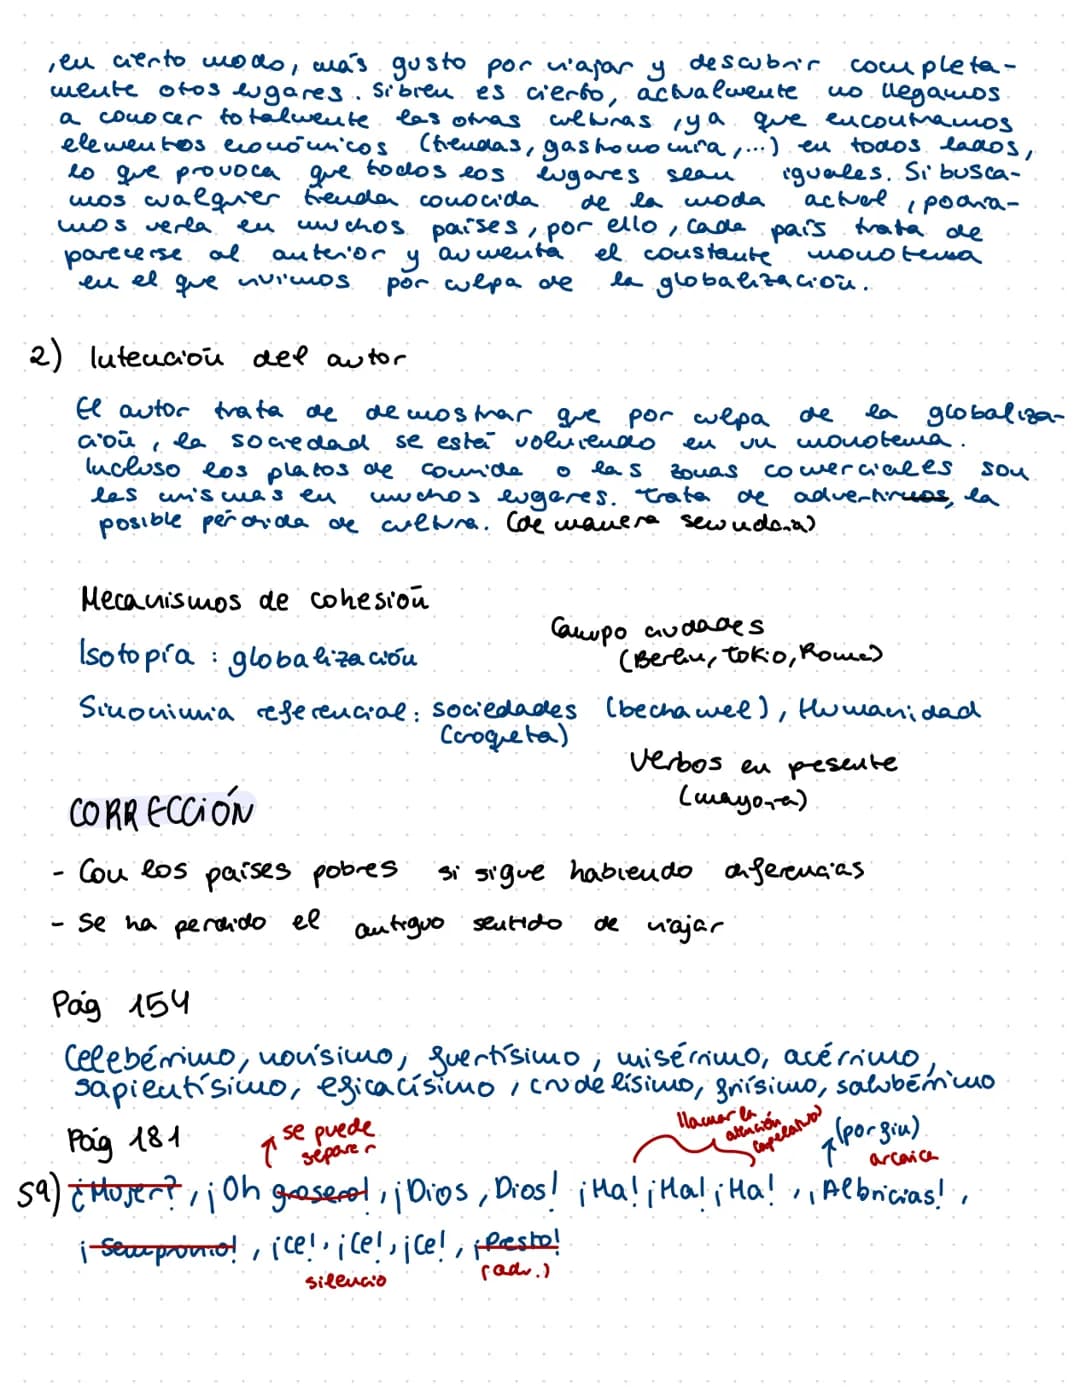 , en cierto modo, más gusto por viajar y descubrir completa-
mente otos lugares. Si bien es cierto, actualmente no llegamos
a conocer totalmente las otras culturas, ya que encontramos
elementos económicos (tiendas, gastronomía,...) en todos lados,
lo que provoca que todos los lugares sean iguales. Si busca-
mos cualquier tienda conocida de la moda actual, podría-
mos verla en muchos países, por ello, cada país trata de
parecerse al anterior y aumenta el constante monotema
en el que vivimos por culpa de la globalización.
2) Intención del autor
El autor trata de demostrar que por culpa de la globaliza-
ción, la sociedad se está volviendo en un monotema.
Incluso los platos de comida o las zonas comerciales son
las mismas en muchos lugares. Trata de advertirnos, la
posible pérdida de cultura. (de manera secundaria)
Mecanismos de cohesión
Campo ciudades
(Berlín, Tokio, Roma)
Isotopía : globalización
Sinonimia referencial: sociedades (bechamel), Humanidad
(croqueta)
Verbos en pesente
(mayoría)
CORRECCIÓN
- Con los países pobres si sigue habiendo diferencias
- Se ha perdido el antiguo sentido de viajar
Pág 154
Celebérrimo, novísimo, fuertísimo, misérrimo, acérrimo,
sapientísimo, eficacísimo, crudelísimo, friísimo, salubérrimo
Pág 181
se puede
separar
llamar la
atención
(apelativo)
(por fin)
arcaica
59) ¿Mujer?, ¡Oh grosero!, ¡Dios, Dios! ¡Ha! ¡Ha! ¡Ha!, ¡Albricias!,
¡Sempronio!, ¡ce!, ¡Ce!, ¡ce!, ¡Presto!
silencio
(adv.)